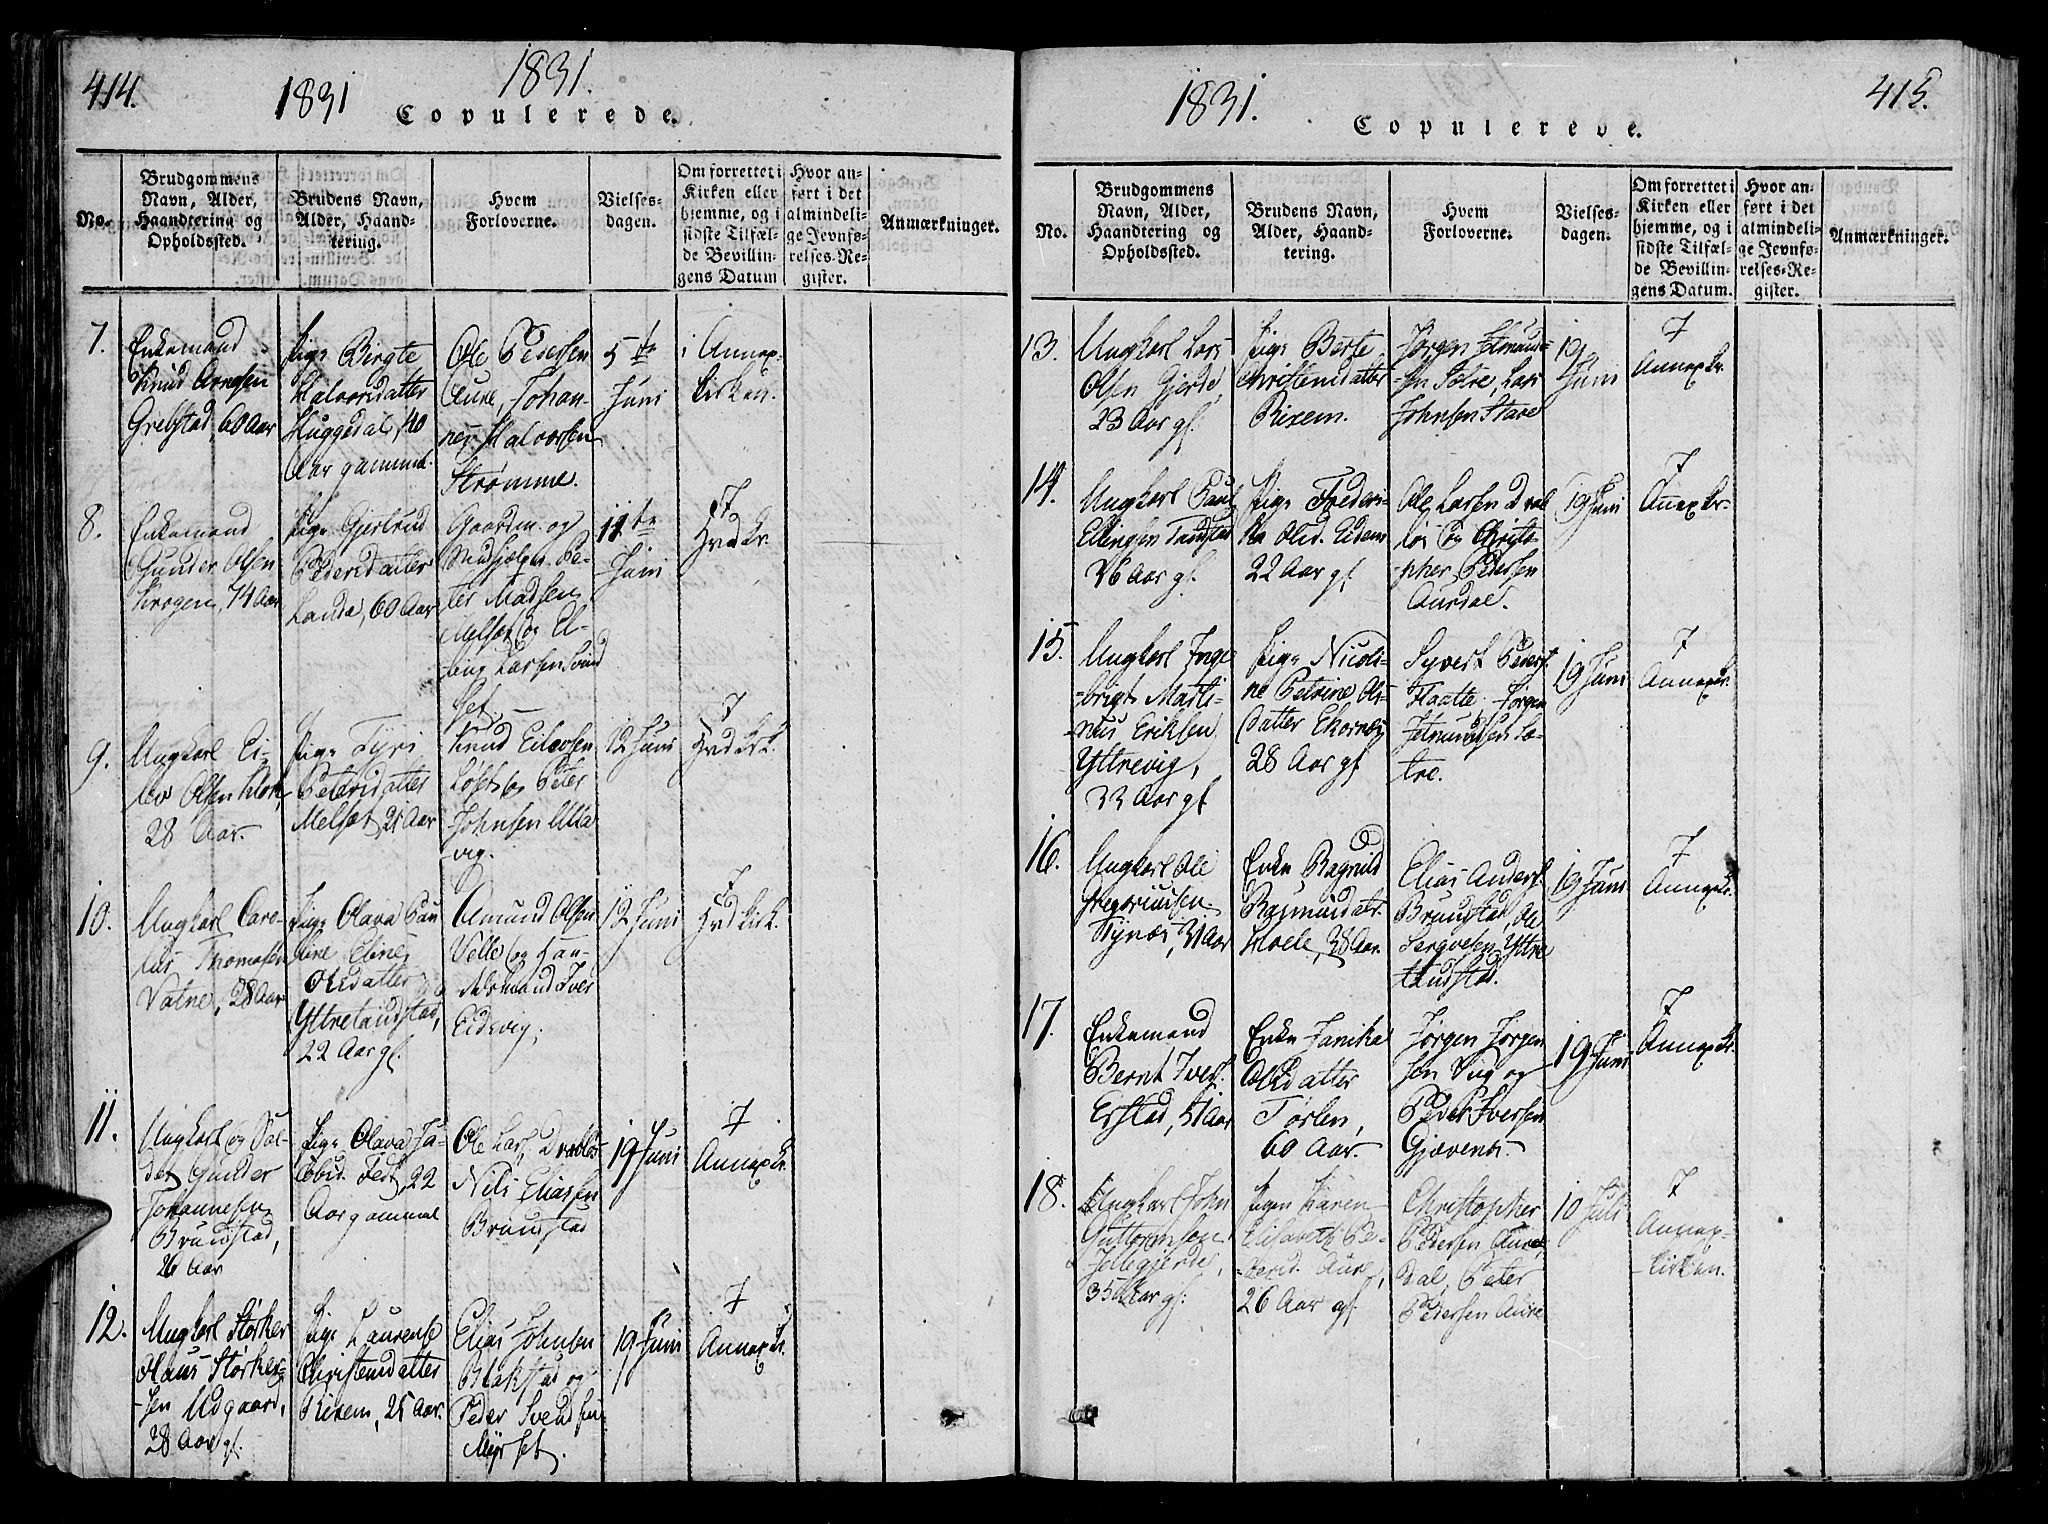 414.
1831
1831.
Copulerede.
No.
Brudgommens
Navn, Alder,
Haandtering og
Opholdssted.
Brudens Navn,
Alder, Haand-
tering.
Hvem
Forloverne.
Vielses-
dagen.
Om forrettet i
Kirken eller
hjemme, og i
sidste Tilfæl-
de Bevillin-
gens Datum
Hvor an-
ført i det
almindeli-
ge Jevnfø-
relses-Re-
gister.
Anmærkninger.
7.
Enkemand
Knud Arnesen
Grebstad, 60 Aar
Pige Birgte
Halvorsdatter
Huggedal, 40
Aar gammel.
Ole Pedersen
Aure, Johan-
nes Halvorsen
Strømme.
5te
Juni
i Annex-
kirken.
8.
Enkemand
Gunder Olsen
Krogen, 74 Aar
Pige Gjertrud
Pedersdatter
Landa, 60 Aar
Gaardm. og
Medhjelper Pe-
ter Madsen
Melsæt og El-
ling Larsen Svind
set.
11te
Juni
I
Hvdkr.
9.
Ungkarl Ei-
lev Olsen Klok,
28 Aar.
Pige Tyri
Petersdatter
Melsæt, 21 Aar
Knud Eilevsen
Løset og Peter
Johnsen Ulla
vig.
12 Juni
I
Hvdkrk.
10.
Ungkarl Caro-
lus Thomasen
Vatne, 28 Aar
Pige Olava Pau
line Eline
Olsdatter
Ytretandstad,
22 Aar gl.
Amund Olsen
Velle og Han-
delsmand Iver
Eidsvig.
12 Juni
I
Hvdkirk.
11.
Ungkarl og Sol-
dat Gunder
Johannesen
Brundstad,
26 Aar
Pige Olava Ja-
cobsd. Fedt, 22
Aar gammel
Ole Lars. Drabløs
Nils Eliassen
Brunstad
19 Juni
I
Annexkr.
12.
Ungkarl Størker
Claus Størker-
sen Udgaard,
28 Aar gl.
Pige Laurense
Christensdatter
Rixem, 25 Aar.
Elias Johnsen
Blakstad og
Peder Svendsen
Myrset.
19 Juni
I
Annexkr.
1831.
415.
Copulerede.
No.
Brudgommens
Navn, Alder,
Haandtering og
Opholdssted.
Brudens Navn,
Alder, Haand-
tering.
Hvem
Forloverne.
Vielses-
dagen.
Om forrettet i
Kirken eller
hjemme, og i
sidste Tilfæl-
de Bevillin-
gens Datum.
Hvor an-
ført i det
almindeli-
ge Jevnfø-
relses-Re-
gister.
Anmærkninger.
13.
Ungkarl Lars
Olsen Gjerde,
23 Aar gl.
Pige Berte
Christensdatter
Rixem.
Jørgen Jetmund-
sen Sætre, Lars
Johnsen Stave
19
Juni
I
Annexkr.
14.
Ungkarl Paul
Ellingsen Tandstad
26 Aar gl.
Pige Frederi-
ka Olsd. Eidem
22 Aar gl.
Ole Larsen Drab
løs og Christo-
pher Pedersen
Auredal.
19 Juni
I
Anexkr.
15.
Ungkarl Inge
brigt Marti-
nus Eriksen
Yttrevig,
33 Aar gl.
Pige Nicoli-
ne Petrine Ols-
datter Ekornæs
28 Aar gl.
Syvert Peders.
Flaatte, Jørgen
Jetmundsen Sæ-
tre.
19 Juni
I
Annexkr.
16.
Ungkarl Ole
Gregoriussen
Rynæs, 31 Aar
Enke Ragnild
Rasmusdatr.
Hoele, 38 Aar.
Elias Anders.
Brundstad, Ole
Sergvesen Yttre
tandstad.
19 Juni
I
Annexkr.
17.
Enkemand
Bernt Ivers.
Erstad, 51 Aar
Enke Janika
Olsdatter
Tørlen,
60 Aar.
Jørgen Jørgen
sen Viig og
Peder Iversen
Gjævenes.
19 Juni
I
Annexkr.
18.
Ungkarl John
Guttormsen
Jellegjerde,
35 Aar gl.
Pigen Karen
Elisabeth Pe-
dersd. Aure,
26 Aar gl.
Christopher
Pedersen Aure
Dal, Peter
Pedersen Aure
10 Juli
I
Annex-
kirken.